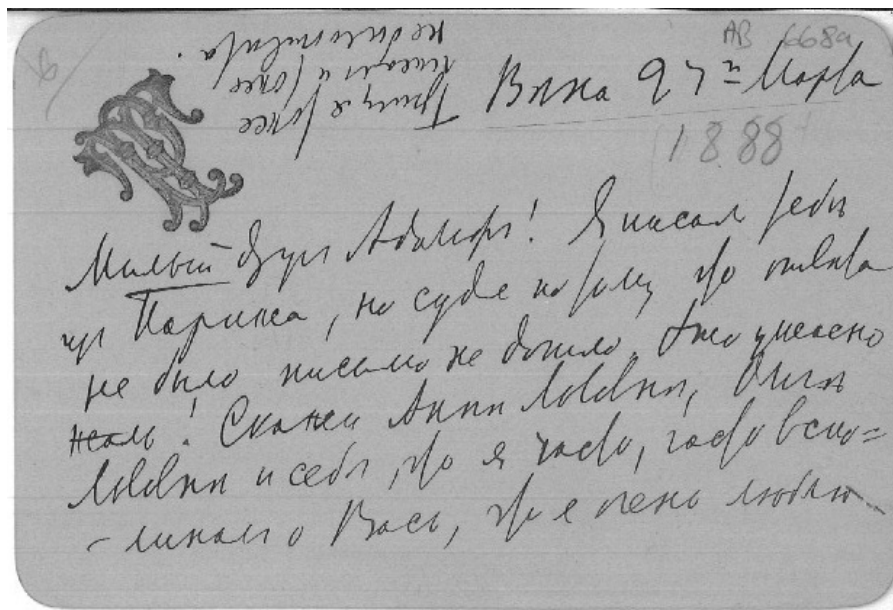 АВ 668а
Вѣна 27го Марта
1888
Милый другъ Адольфъ! Я писалъ тебѣ
изъ Парижа, но судя по тому, что отвѣта
не было письмо не дошло. Это ужасно
жаль! Скажи Аннѣ Львовнѣ, Ольгѣ
Львовнѣ и себѣ, что я часто, часто вспо=
-минаю о Васъ, что я очень люблю